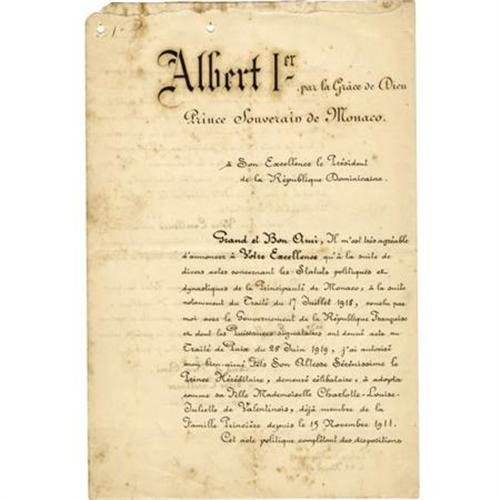 Albert Ier par la Grâce de Dieu
Prince Souverain de Monaco.
à Son Excellence le Président
de la République Dominicaine.
Grand et Bon Ami, Il m'est très agréable
d'annoncer à Votre Excellence qu'à la suite de
divers actes concernant les Statuts politiques et
dynastiques de la Principauté de Monaco, à la suite
notamment du Traité du 17 Juillet 1918, conclu par
moi avec le Gouvernement de la République Française
et dont les Puissances signataires ont donné acte au
Traité de Paix du 28 Juin 1919, j'ai autorisé
mon bien-aimé Fils Son Altesse Sérénissime le
Prince Héréditaire, demeuré célibataire, à adopter
comme sa Fille Mademoiselle Charlotte-Louise-
Juliette de Valentinois, déjà membre de la
Famille Princière depuis le 15 Novembre 1911.
Cet acte politique complétant des dispositions